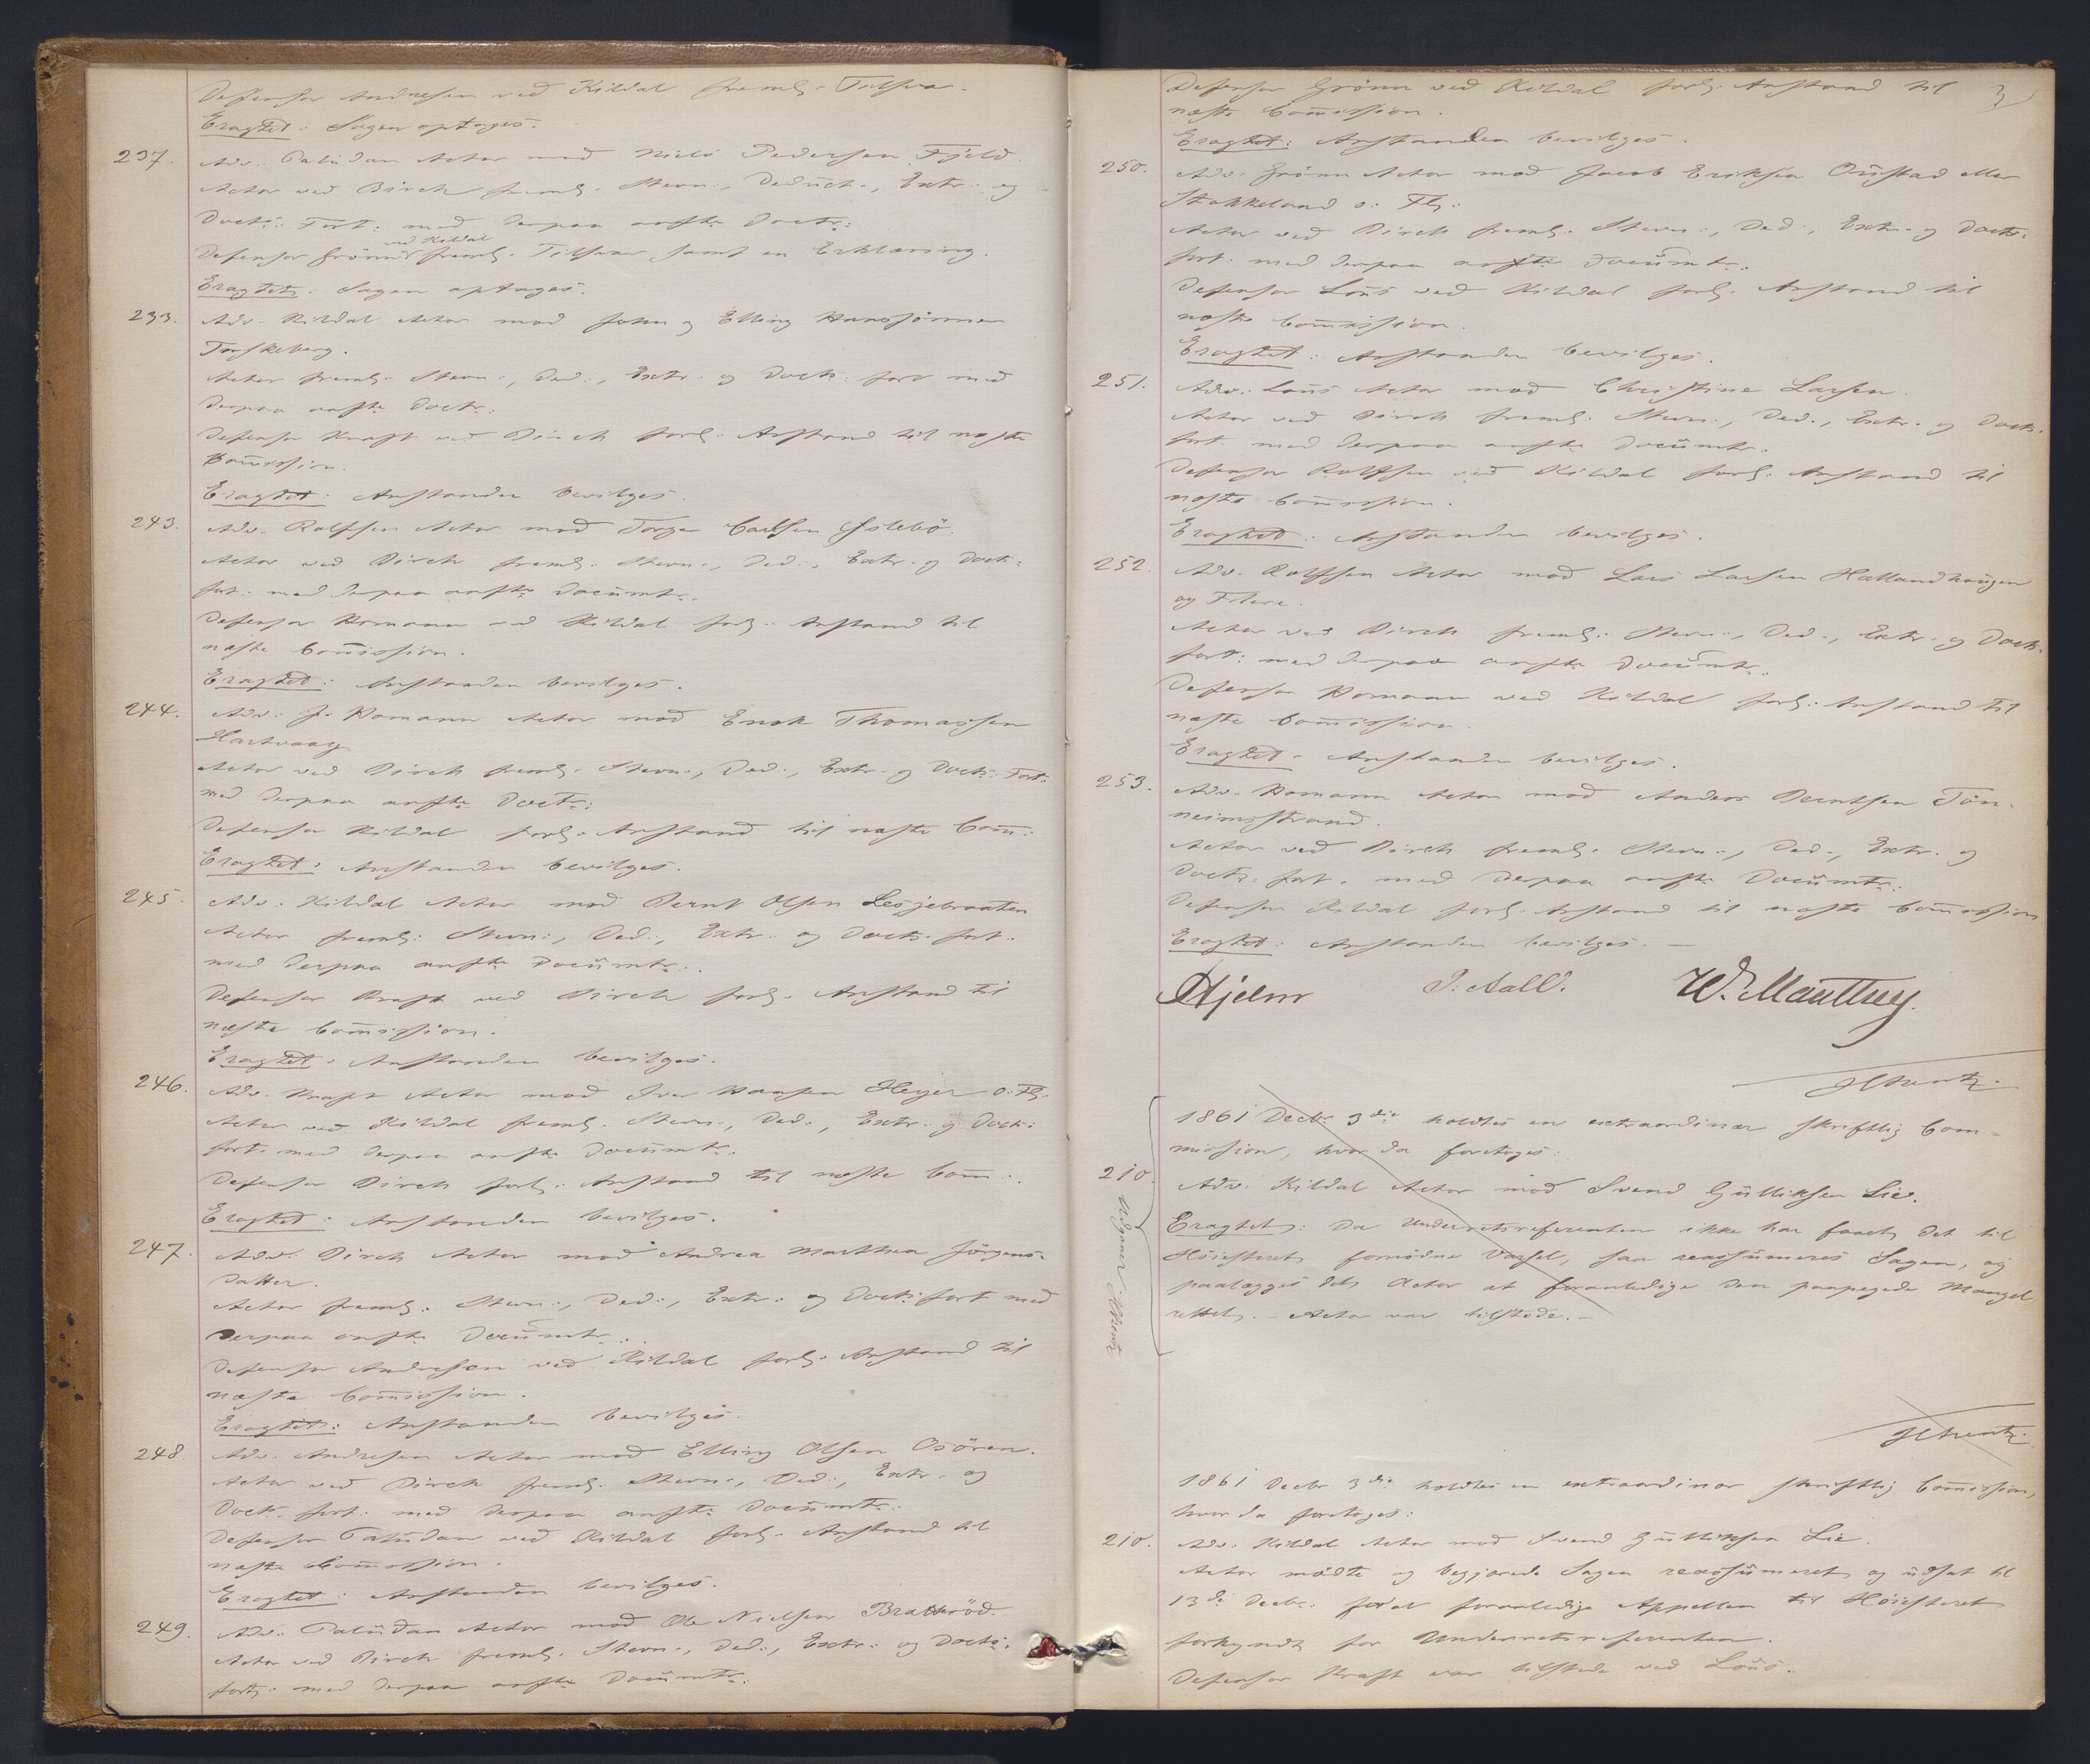 Defensor Andresen ved Kildal freml. Tilsvar.
Eragtet: Sagen optages.
237. Adv. Paludan Actor mod Niels Pedersen Fjeld.
Actor ved Birch freml. Stevn., Deduct., Extr. og
Doct. Fort. med derpaa anfte Doctr:
Defensor Grönn ved Kildal freml. Tilsvar samt en Erklæring.
Eragtet: Sagen optages.
233. Adv. Kildal Actor mod John og Elling Hanssönner
Torskeberg.
Actor freml. Stevn., Ded., Extr. og Doct. fort med
derpaa anfte Doctr:
Defensor Kraft ved Birch forl. Anstand til næste
Commission.
Eragtet: Anstanden bevilges.
243. Adv. Rolfsen Actor mod Torger Carlsen
Actor ved Birch freml. Stevn., Ded., Extr. og Doct.
fort. med derpaa anfte Documtr.
Defensor Homann ved Kildal forl. Anstand til
næste Commission.
Eragtet: Anstanden bevilges.
244. Adv. J. Homann Actor mod Enok Thomassen
Hartvaag
Actor ved Birch freml. Stevn., Ded., Extr. og Doct. Fort.
med derpaa anfte Doctr:
Defensor Kildal forl. Anstand til næste Comm:
Eragtet: Anstanden bevilges.
245. Adv. Kildal Actor mod Bernt Olsen Lesjebraaten
Actor freml: Stevn:, Ded:, Extr. og Doct. fort.
med derpaa anfte Documtr.
Defensor Kraft ved Birch forl. Anstand til
næste Commission.
Eragtet: Anstanden bevilges.
246. Adv. Kraft Actor mod Iver Hansen Heyer o. Fl.
Actor ved Kildal freml. Stevn., Ded., Extr. og Doct:
fort. med derpaa anfte Documtr.
Defensor Birch forl. Anstand til næste Com:
Eragtet: Anstanden bevilges.
247. Adv. Birch Actor mod Andrea Marthea Jörgens-
datter.
Actor freml. Stevn., Ded:, Extr: og Doct: fort med
derpaa anfte Documtr.
Defensor Andresen ved Kildal forl. Anstand til
næste Commission.
Eragtet: Anstanden bevilges.
248. Adv. Andresen Actor mod Elling Olsen Osören.
Actor ved Birch freml. Stevn., Ded., Extr. og
Doct. fort. med derpaa anfte Documtr.
Defensor Paludan ved Kildal forl. Anstand til
næste Commission.
Eragtet: Anstanden bevilges.
249. Adv. Paludan Actor mod Ole Nielsen Bratteröd.
Actor ved Birch freml. Stevn., Ded:, Extr: og Doct.
fort: med derpaa anfte Documtr.
3
Defensor Grönn ved Kildal forl. Anstand til
næste Commission.
Eragtet: Anstanden bevilges.
250. Adv. Grönn Actor mod Jacob Eriksen Oustad eller
Stokkeland o. Fl.
Actor ved Birch freml. Stevn:, Ded., Extr. og Doct.
fort. med derpaa anfte Documtr.
Defensor Lous ved Kildal forl. Anstand til
næste Commission.
Eragtet: Anstanden bevilges.
251. Adv. Lous Actor mod Christine Larsen.
Actor ved Birch freml. Stevn., Ded., Extr. og Doct.
fort. med derpaa anfte Documtr.
Defensor Rolfsen ved Kildal forl. Anstand til
næste Commission.
Eragtet: Anstanden bevilges.
252. Adv. Rolfsen Actor mod Lars Larsen Hallandhaugen
og Flere.
Actor ved Birch freml: Stevn., Ded., Extr. og Doct.
fort: med derpaa anfte Documtr.
Defensor Homann ved Kildal forl. Anstand til
næste Commission.
Eragtet. Anstanden bevilges.
253. Adv. Homann Actor mod Anders Berntsen Tön-
neimstrand.
Actor ved Birch freml. Stevn., Ded., Extr. og
Doct. fort. med derpaa anfte Documtr.
Defensor Kildal forl. Anstand til næste Commission
Eragtet: Anstanden bevilges.
Hjelm J. Aall. W. Manthey.
1861 Decbr 3die holdtes en extraordinær skriftlig Com-
mission, hvor da foretoges:
210. Adv. Kildal Actor mod Svend Gulliksen Lie.
Udgaaer
Eragtet: Da Underretsreferenten ikke har faaet det til
Höiesteret fornödne Varsel, saa reassumeres Sagen, og
paalægges det Actor at foranledige den paapegede Mangel
rettet. - Actor var tilstede. -
1861 Decbr 3die holdtes en extraordinær skriftlig Commission,
hvor da foretoges:
210. Adv. Kildal Actor mod Svend Gulliksen Lie.
Actor mödte og begjærede Sagen reassumeret og udsat til
13de Decbr: for at foranledige Appellen til Höiesteret
forkyndt for Underretsreferenten.
Defensor Kraft var tilstede ved Lous.